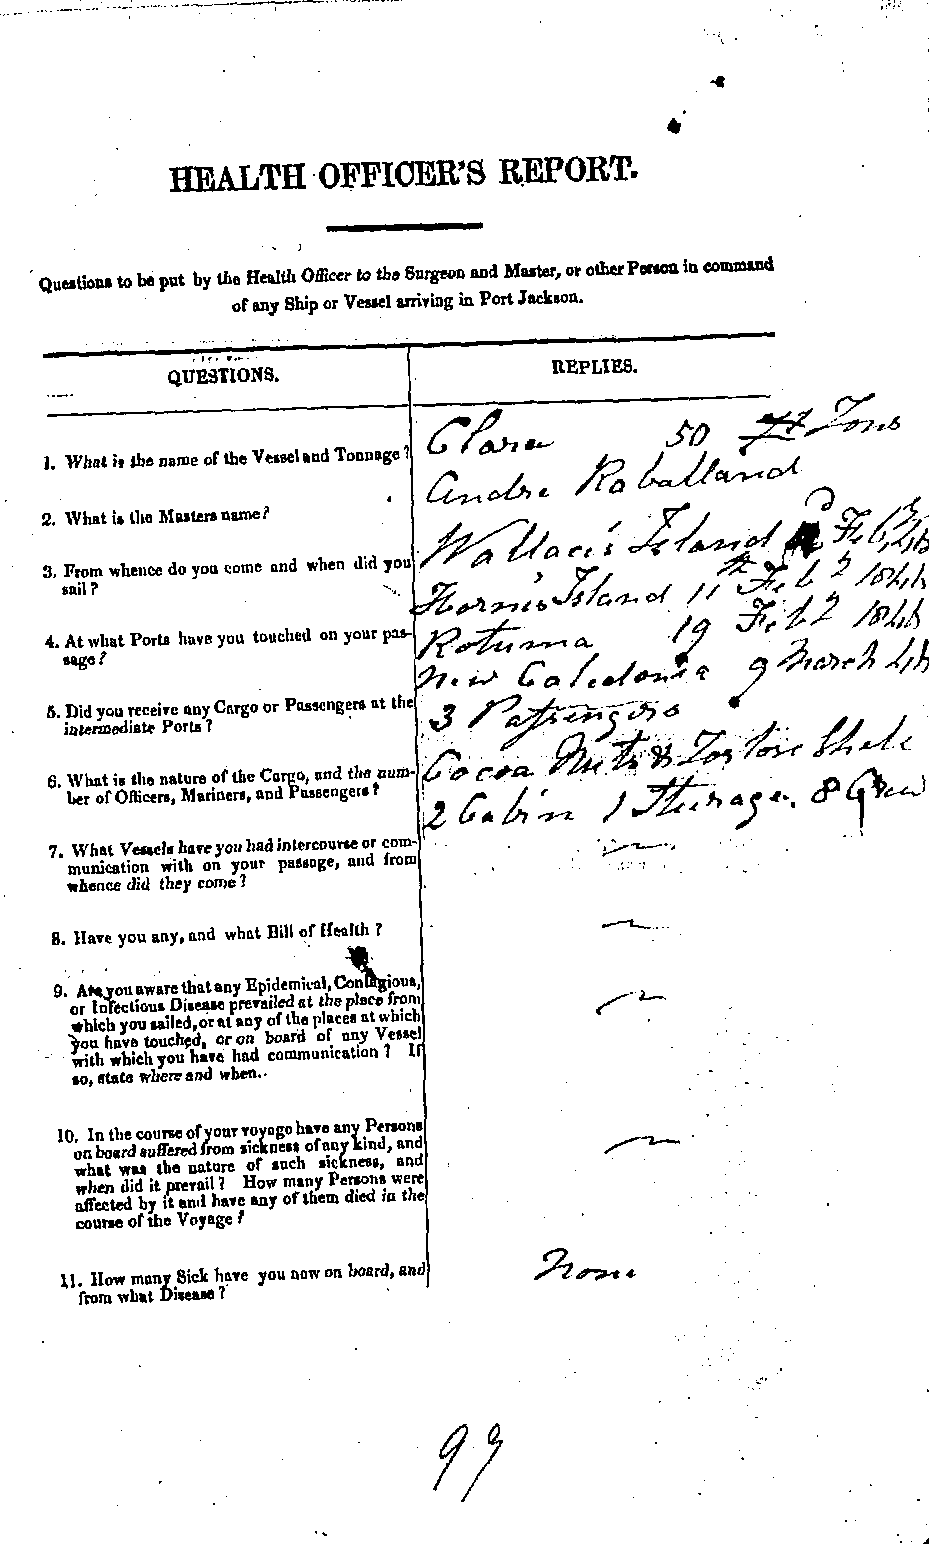 HEALTH OFFICER'S REPORT.
Questions to be put by the Health Officer to the Surgeon and Master, or other Person in command
of any Ship or Vessel arriving in Port Jackson.
QUESTIONS.
REPLIES.
1. What is the name of the Vessel and Tonnage?
Clara 50 Tons
2. What is the Masters name?
Andre Raballand
3. From whence do you come and when did you
sail?
Wallace's Island Feb
Horn's Island 11th Feb 1844
4. At what Ports have you touched on your pas-
sage?
Rotuma 19 Feb 1844
New Caledonia 9 March 44
5. Did you receive any Cargo or Passengers at the
intermediate Ports?
3 Passengers
6. What is the nature of the Cargo, and the num-
ber of Officers, Mariners, and Passengers?
Cocoa Nuts & Tortore Shele
2 Cabin 1 Sturage. 8 Crew
7. What Vessels have you had intercourse or com-
munication with on your passage, and from
whence did they come?
8. Have you any, and what Bill of Health?
9. Are you aware that any Epidemical, Contagious,
or Infectious Disease prevailed at the place from
which you sailed, or at any of the places at which
you have touched, or on board of any Vessel
with which you have had communication? If
so, state where and when..
10. In the course of your voyage have any Persons
on board suffered from sickness of any kind, and
what was the nature of such sickness, and
when did it prevail? How many Persons were
affected by it and have any of them died in the
course of the Voyage?
11. How many Sick have you now on board, and
from what Disease?
None
99